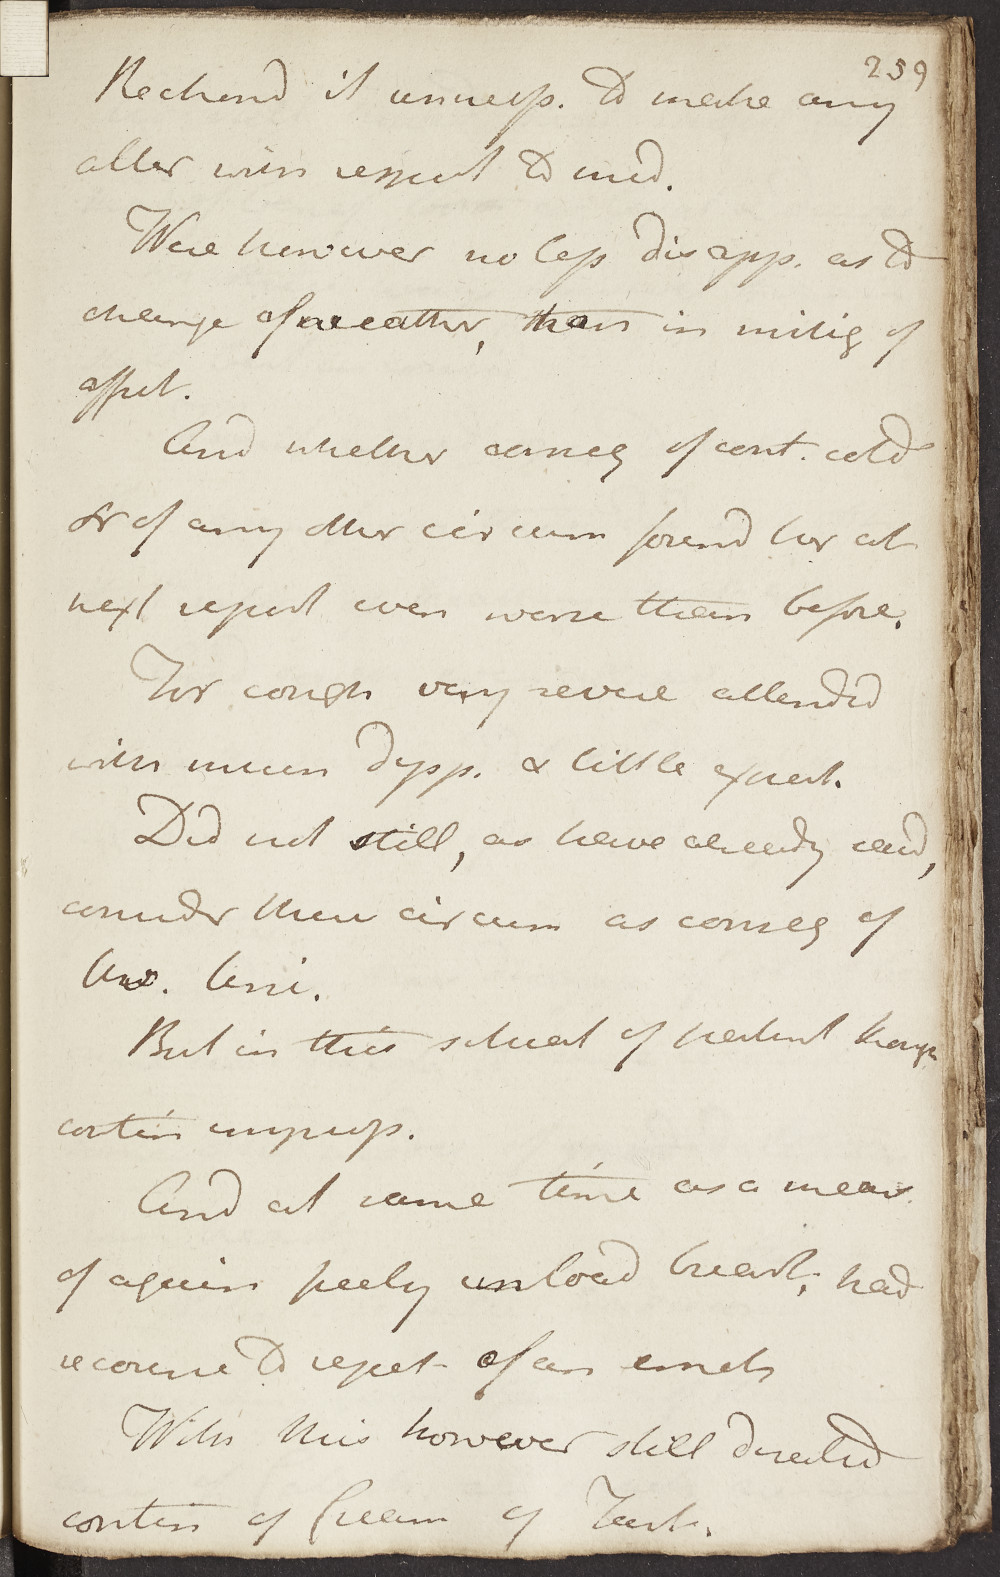 259
Reckond it unnecss. to make any
alter with respect to med.
Were however no less disapp. as to
change of weather, than in mitig of
affect.
And whether conseq of cont. cold
or of any other circum found her at
next report even worse than before.
For cough very severe attended
with much dysp. & little expect.
Did not still, as have already said,
consider these circum as conseq of
Ant.
But in this situat of patient
contin unprop.
And at same time as a mean
of again freely unload breast, had
recourse to repet of an emet
With this however still directed
contin of Cream of Tart.